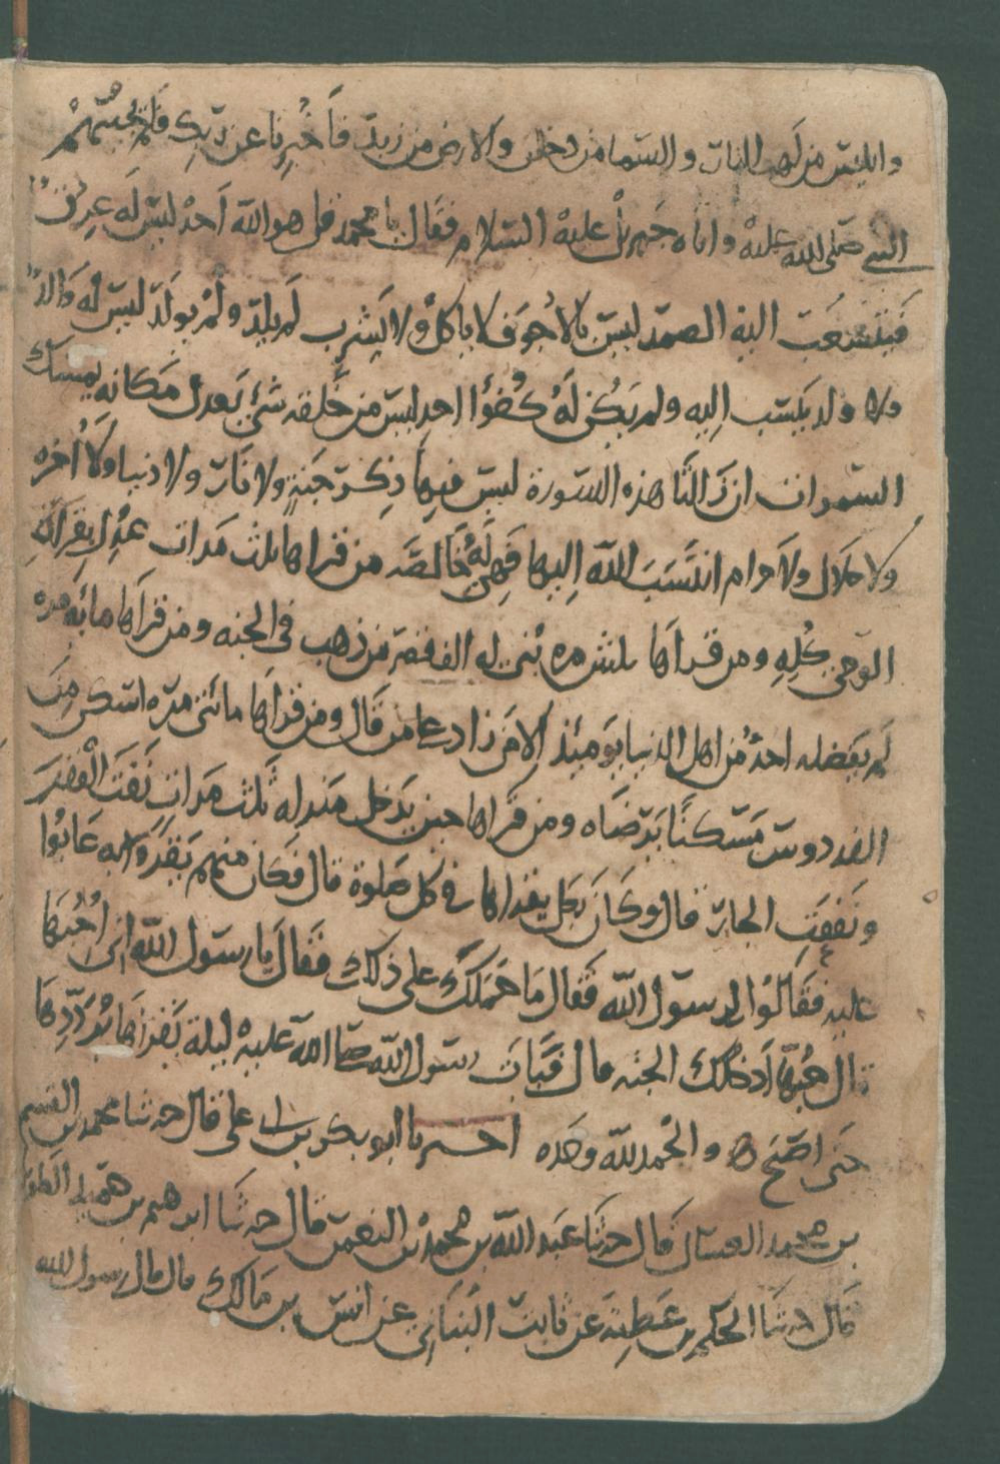 وابليس من لهب النار والسما من دخان والارض من زبد فاخبرنا عن ربك فلم يجبهم
النبي صلى الله عليه واتاه جبريل عليه السلام فقال يا محمد قل هو الله احد ليس له عروق
فتتشعب اليه الصمد ليس بالاجوف لا ياكل ولا يشرب لم يلد ولم يولد ليس له والد
ولا ولد ينسب اليه ولم يكن له كفؤا احد ليس من خلقه شئ يعدل مكانه يمسك
السموات ان زالتا هذه السورة ليس فيها ذكر جنة ولا نار ولا دنيا ولا اخره
ولا حلال ولا حرام انتسب الله اليها فهي له خالصه من قراها ثلث مرات عدل بقراة
الوحي كله ومن قراها ثلثين مره بني له الف قصر من ذهب في الجنه ومن قراها مائه مره
لم يفضله احد من اهل الدنيا يوميذ الا من زاد على من قال ومن قراها مائتي مره اسكن من
الفردوس مسكنا يرضاه ومن قراها حين يدخل منزله ثلث مرات نفت الفقر
ونفعت الجار قال وكان رجل يقراها في كل صلوة قال فكان منهم يقر وانه عابوا
عليه فقالوا لرسول الله فقال ما حملك على ذلك فقال يا رسول الله اني احبها
قال حبها ادخلك الجنه قال فبات رسول الله صلى الله عليه ليلة يقراها يرددها
حتى اصبح والحمد لله وحده اخبرنا ابو بكر بن علي قال حدثنا محمد بن القسم
بن محمد الغسال قال حدثنا عبد الله بن محمد بن النعمن قال حدثنا ابرهيم بن
قال حدثنا الحكم بن عطية عن ثابت البناني عن انس بن مالك قال قال رسول الله